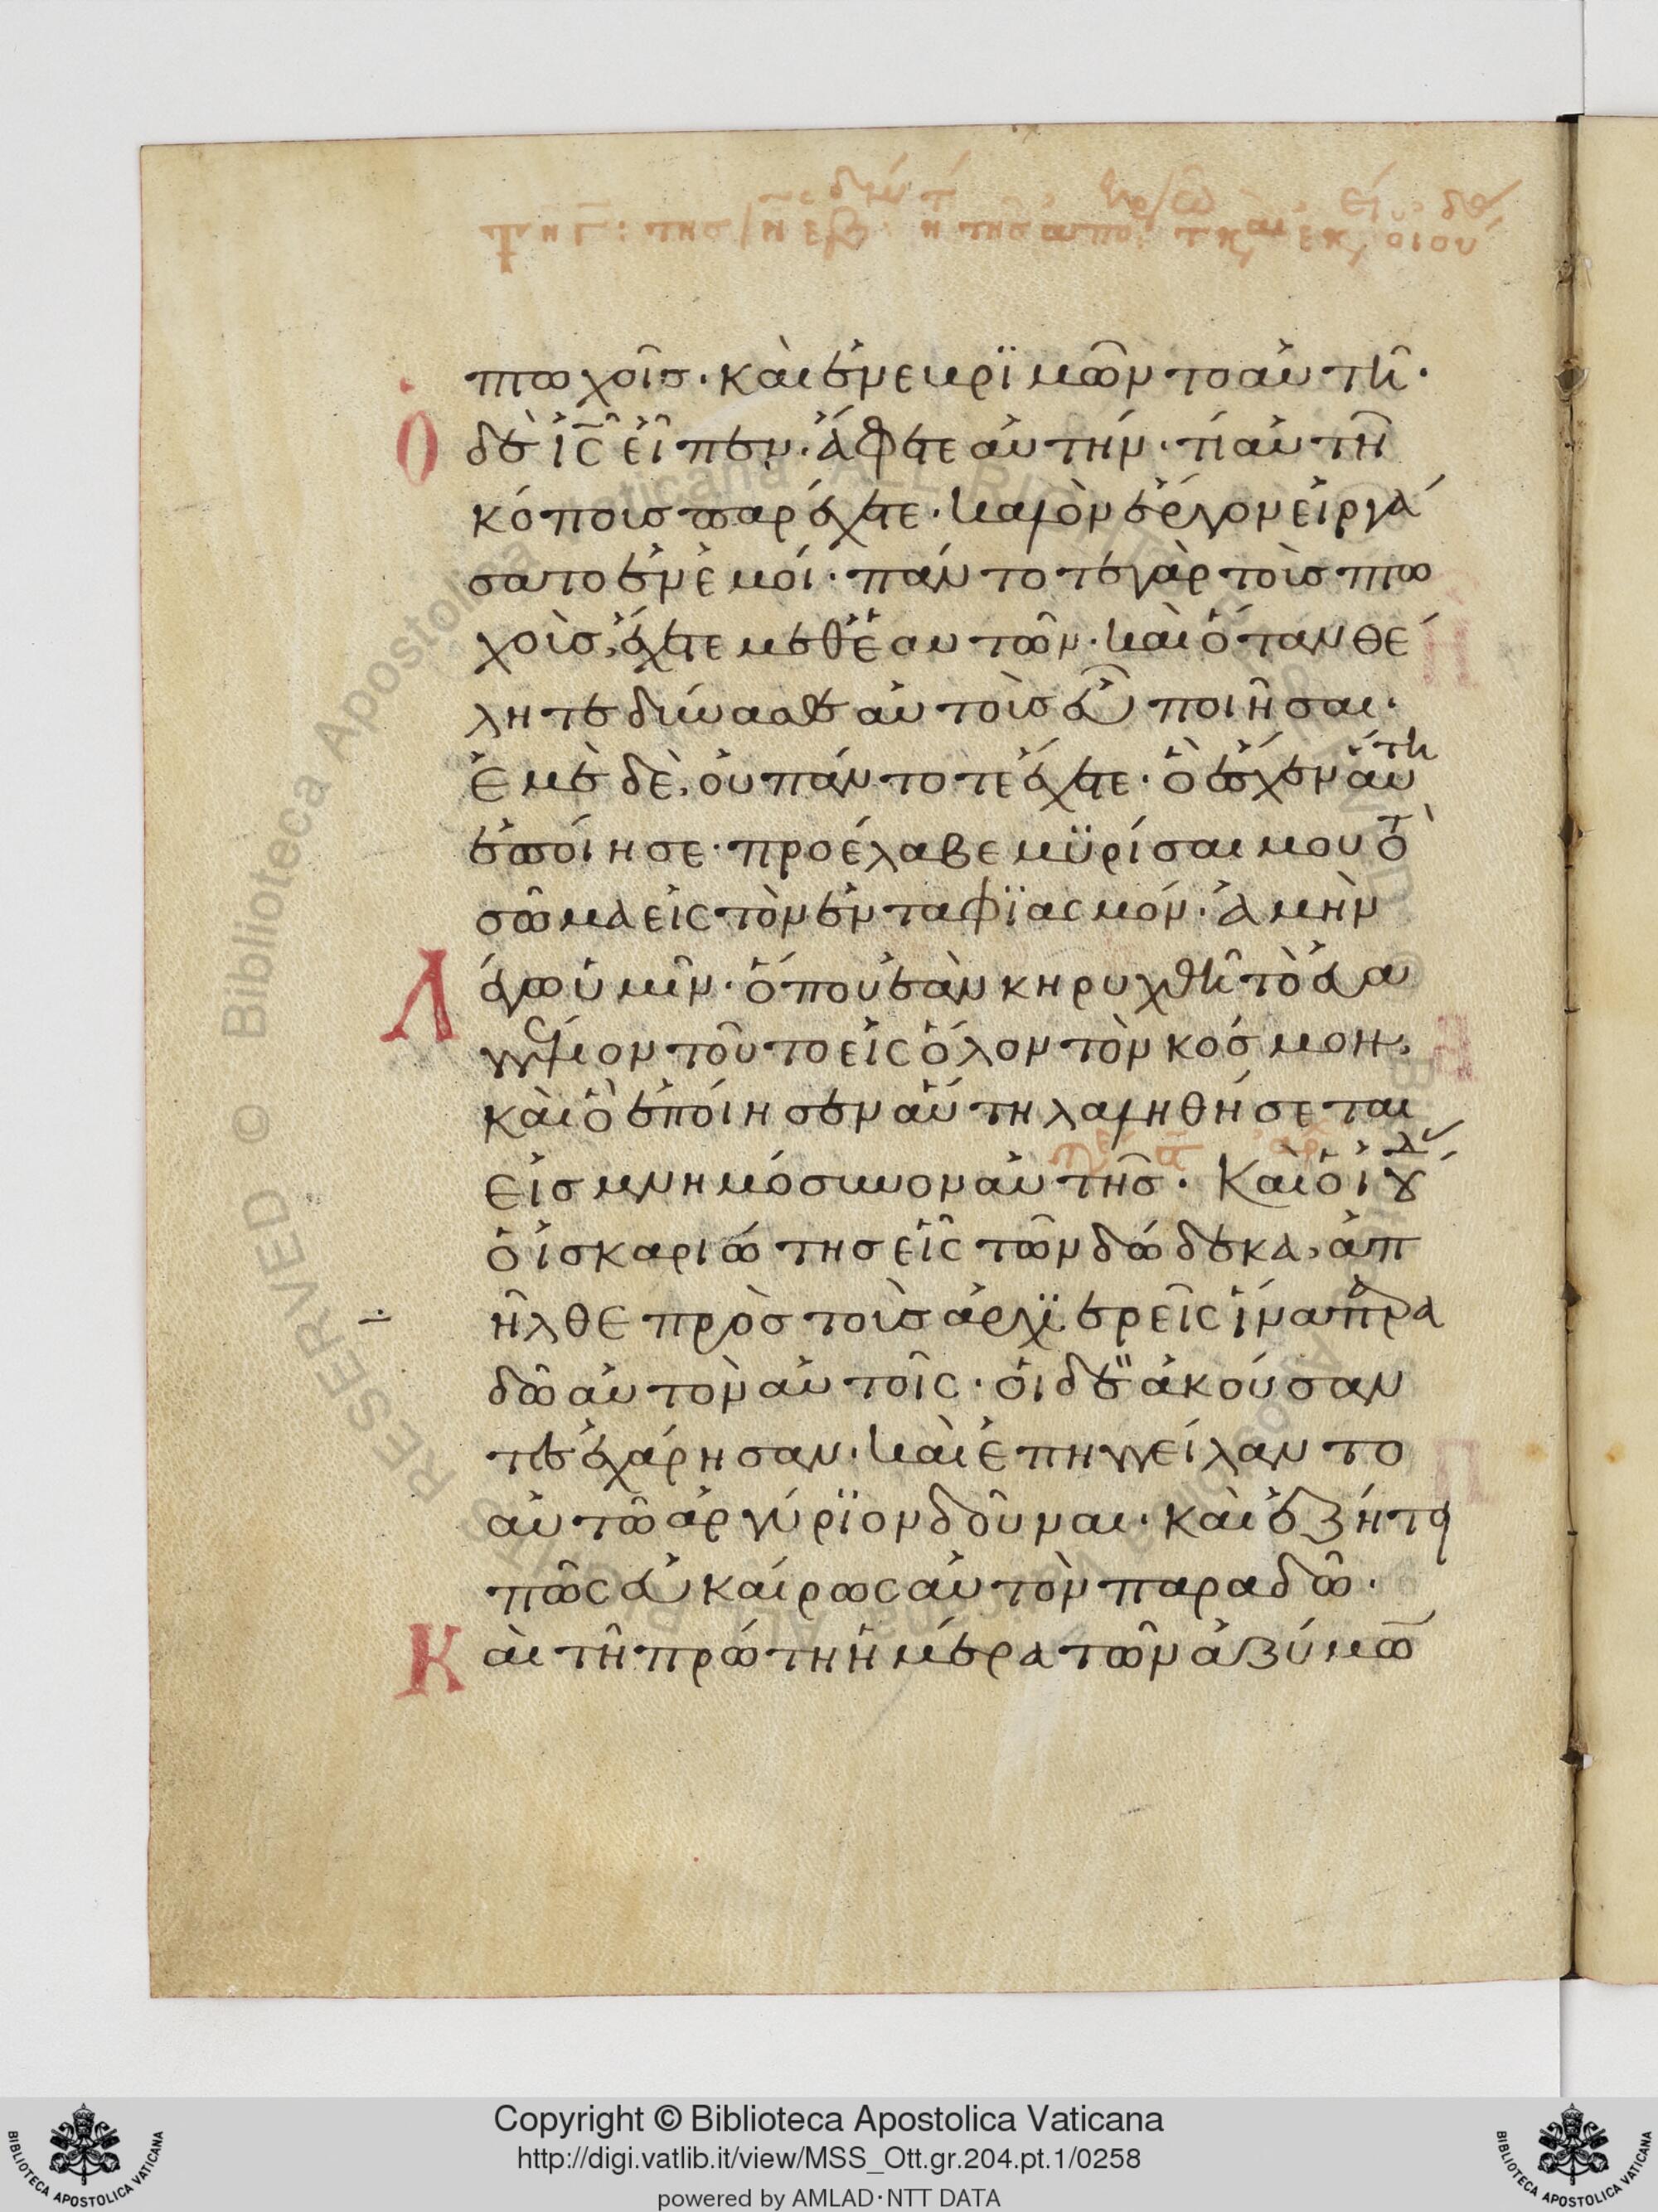 πτωχοῖς· καὶ ἐνεμβριμῶντο αὐτῆ·
Ὁ δὲ ἰς εἶπεν· ἄφετε αὐτήν· τί αὐτῆ
κόπους παρέχετε· καλὸν ἔργον εἰργά
σατο ἐν ἐμοί· πάντοτε γὰρ τοὺς πτω
χοὺς, ἔχετε μεθ' ἑαυτῶν· καὶ ὅταν θέ
λητε δύνασθε αὐτοὺς εὖ ποιῆσαι·
ἐμὲ δὲ, οὐ πάντοτε ἔχετε· ὃ ἔσχεν αὕτη
ἐποίησε· προέλαβε μϋρίσαι μου τὸ
σῶμα εἰς τὸν ἐνταφϊασμόν· ἀμὴν
Λέγω ὑμῖν· ὅπου ἐὰν κηρυχθῆ τὸ εὐα
γγέλιον τοῦτο εἰς ὅλον τὸν κόσμον,
καὶ ὃ ἐποίησεν αὕτη λαληθήσεται
εἰς μνημόσυνον αὐτῆς· Καὶ ὁ ἰούδ
ὁ ἰσκαριώτης εἷς τῶν δώδεκα, ἀπ
ῆλθε πρὸς τοὺς ἀρχϊερεῖς ἵνα παρα
δῶ αὐτὸν αὐτοῖς· οἱ δὲ ἀκούσαν
τες ἐχάρησαν· καὶ ἐπηγγείλαντο
αὐτῶ ἀργύρϊον δοῦναι· καὶ ἐζήτει
πῶς εὐκαίρως αὐτὸν παραδῶ·
Καὶ τῆ πρώτη ἡμέρα τῶν ἀζύμων
Copyright © Biblioteca Apostolica Vaticana
http://digi.vatlib.it/view/MSS_Ott.gr.204.pt.1/0258
powered by AMLAD·NTT DATA